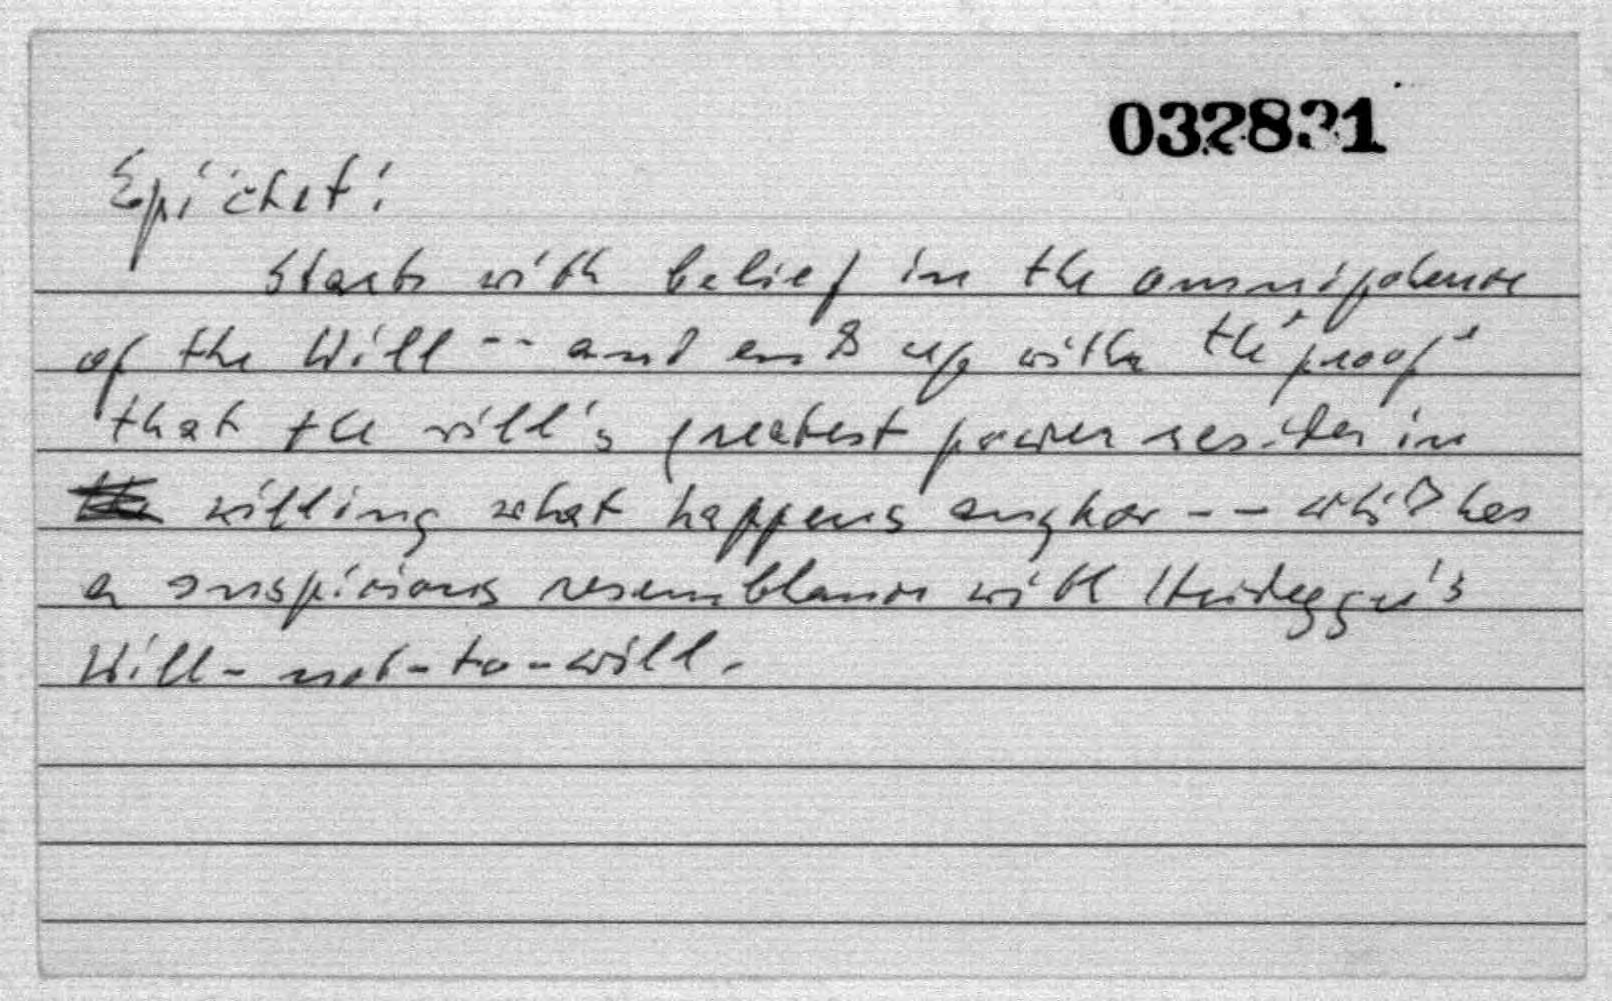 032831
Epictet:
Starts with belief in the omnipotence
of the Will -- and ends up with the "proof"
that the will's greatest power resides in
willing what happens anyhow -- which has
a suspicious resemblance with Heidegger's
Will-not-to-will.